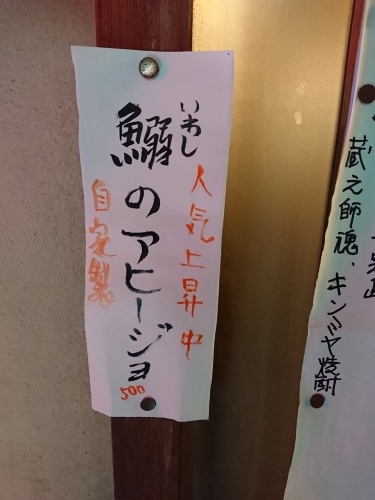 蔵元師魂、キンミヤ焼酎
人気上昇中
いわし
鰯のアヒージョ
500
自家製